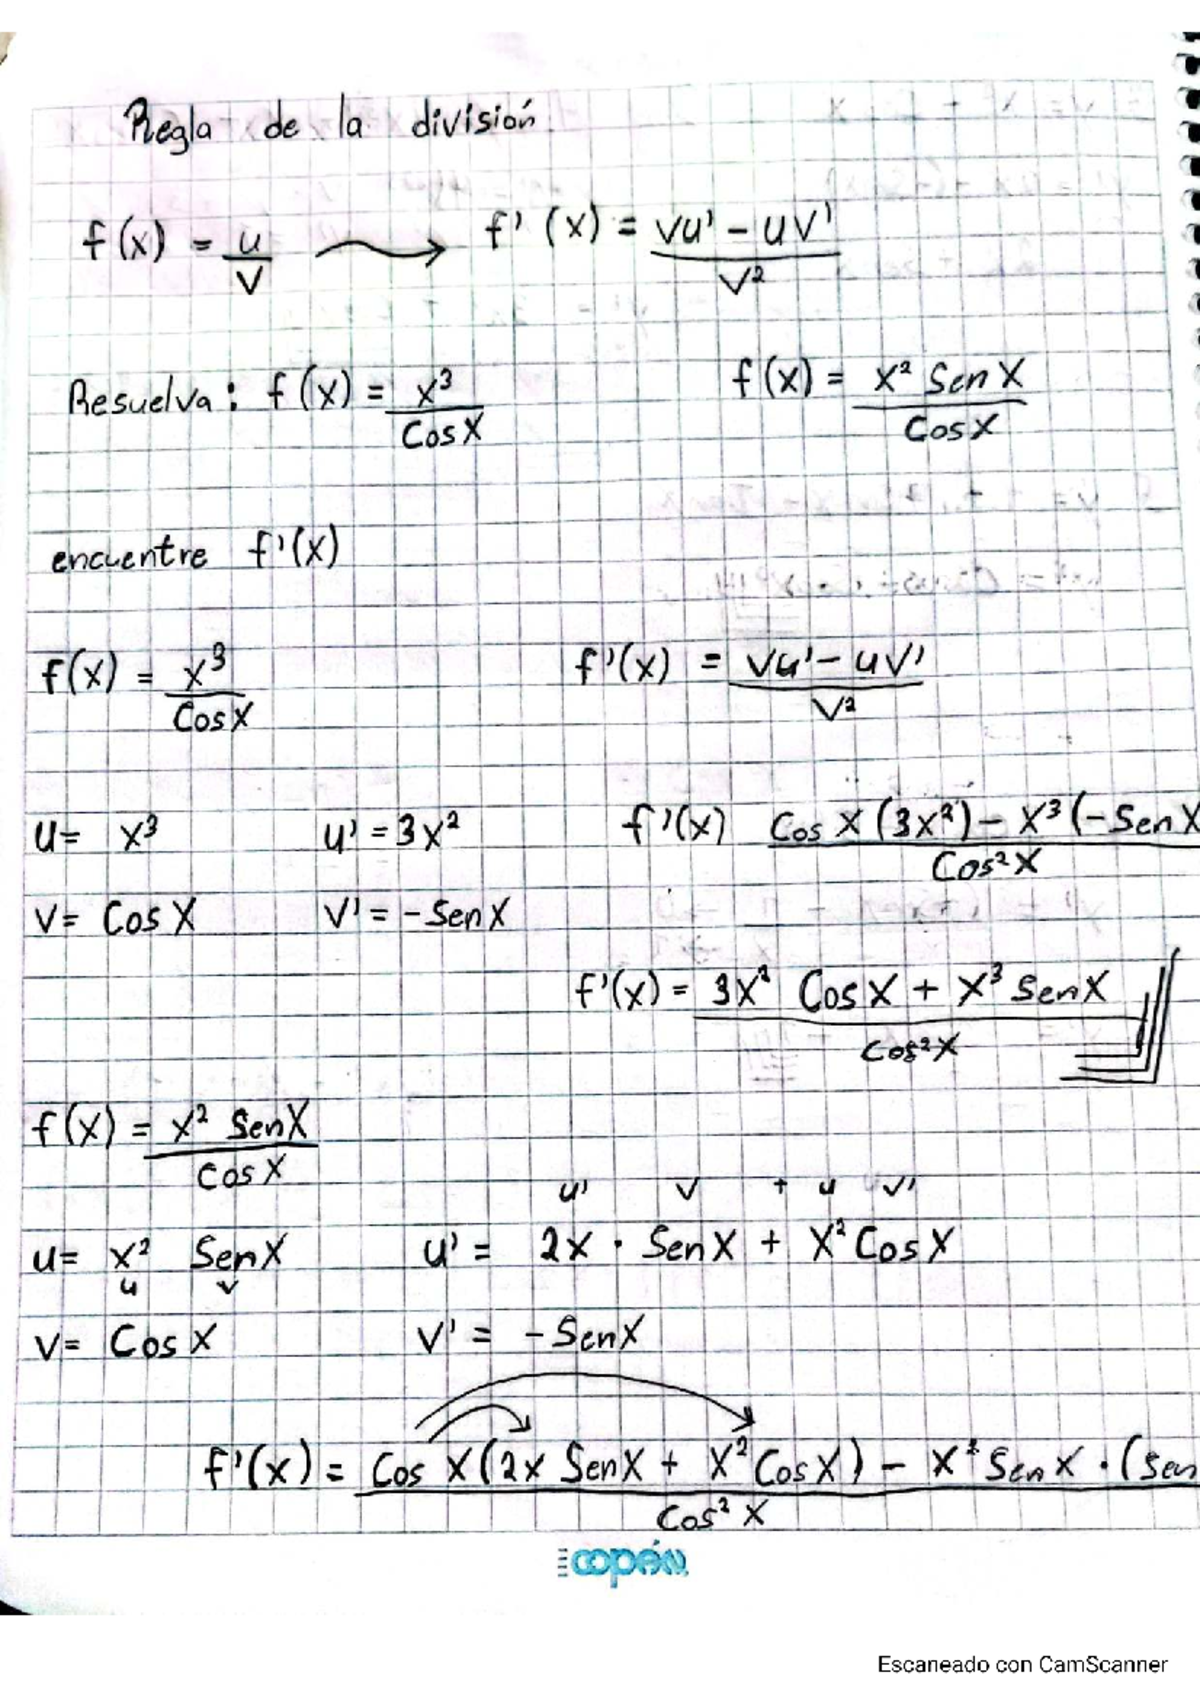 Regla de la división
f(x) = u/v → f'(x) = vu' - uv' / v²
Resuelva: f(x) = x³ / Cos X f(x) = x² Sen X / Cos X
encuentre f'(x)
f(x) = x³ / Cos X f'(x) = vu' - uv' / v²
u= x³ u' = 3x² f'(x) Cos X (3x²) - x³ (-Sen X / Cos² X
v= Cos X v' = -Sen X
f'(x) = 3x² Cos X + x³ Sen X / Cos² X
f(x) = x² Sen X / Cos X
u' v + u v'
u= x² Sen X u' = 2x · Sen X + x² Cos X
u v
v= Cos X v' = -Sen X
f'(x) = Cos X (2x Sen X + x² Cos X) - x² Sen X · (Sen / Cos² X
copán
Escaneado con CamScanner